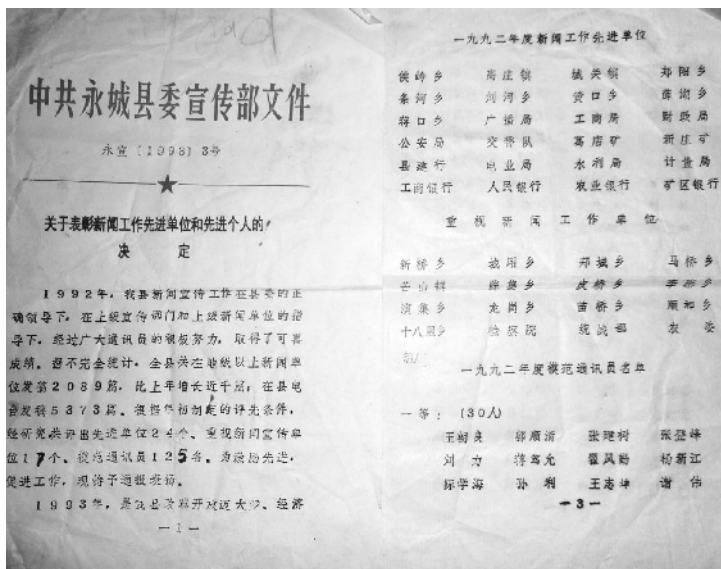 中共永城县委宣传部文件
永宣〔1993〕3号
关于表彰新闻工作先进单位和先进个人的
决 定
1992年，我县新闻宣传工作在县委的正
确领导下，在上级宣传部门和上级新闻单位的指
导下，经过广大通讯员的积极努力，取得了可喜
成绩。据不完全统计，全县共在地级以上新闻单
位发稿2089篇，比上年增长近千篇；在县电
台发稿5373篇。根据年初制定的评先条件，
经研究共评出先进单位24个、重视新闻宣传单
位17个、模范通讯员125名。为激励先进，
促进工作，现给予通报表扬。
1993年，是我县改革开放迈大步、经济
—1—
一九九二年度新闻工作先进单位
侯岭乡 高庄镇 城关镇 郑阳乡
条河乡 刘河乡 黄口乡 薛湖乡
蒋口乡 广播局 工商局 财政局
公安局 交警队 葛店矿 新庄矿
县建行 电业局 水利局 计量局
工商银行 人民银行 农业银行 矿区银行
重视新闻工作单位
新桥乡 城厢乡 郑城乡 马桥乡
芒山镇
演集乡 龙岗乡 苗桥乡 顺和乡
十八里乡 检察院 统战部 农委
一九九二年度模范通讯员名单
一等：（30人）
王树良 郭顺清 张建树 张登峰
刘力 蒋笃允 翟凤勤 杨新江
学海 孙利 王志坤 谢伟
—3—